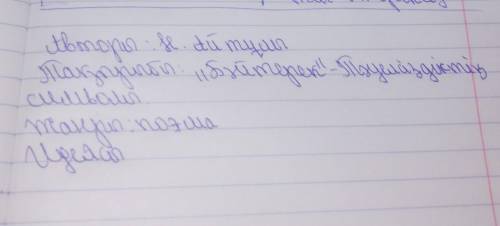 Авторы: Н. Айтұлы
Тақырыбы: „Бәйтерек“ - Тәуелсіздіктің
символы
Жанры: поэма
Идеясы